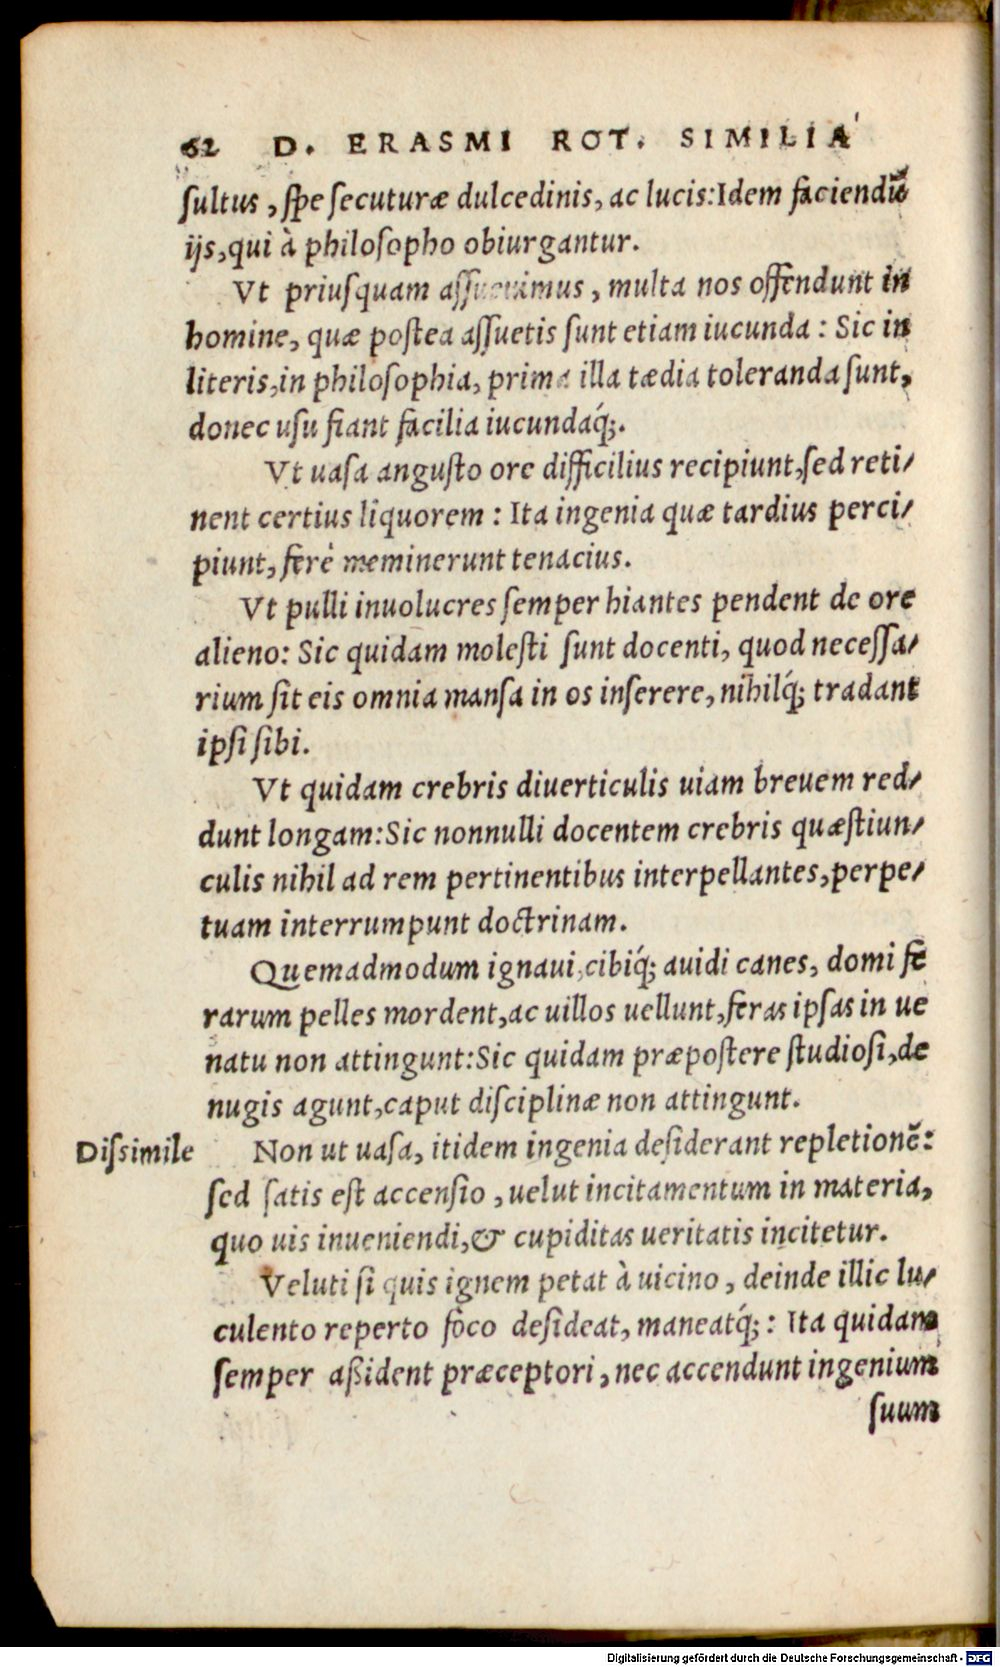 62 D. ERASMI ROT. SIMILIA
ſultus, ſpe ſecuturæ dulcedinis, ac lucis: Idem faciendū
ijs, qui à philoſopho obiurgantur.
Vt priuſquam aſſueuimus, multa nos offendunt in
homine, quæ poſtea aſſuetis ſunt etiam iucunda: Sic in
literis, in philoſophia, prima illa tædia toleranda ſunt,
donec uſu fiant facilia iucundaq́;.
Vt uaſa anguſto ore difficilius recipiunt, ſed reti/
nent certius liquorem: Ita ingenia quæ tardius perci/
piunt, ferè meminerunt tenacius.
Vt pulli inuolucres ſemper hiantes pendent de ore
alieno: Sic quidam moleſti ſunt docenti, quod neceſſa/
rium ſit eis omnia manſa in os inſerere, nihilq́; tradant
ipſi ſibi.
Vt quidam crebris diuerticulis uiam breuem red/
dunt longam: Sic nonnulli docentem crebris quæſtiun/
culis nihil ad rem pertinentibus interpellantes, perpe/
tuam interrumpunt doctrinam.
Quemadmodum ignaui, cibiq́; auidi canes, domi fe
rarum pelles mordent, ac uillos uellunt, feras ipſas in ue
natu non attingunt: Sic quidam præpoſtere ſtudioſi, de
nugis agunt, caput diſciplinæ non attingunt.
Diſsimile
Non ut uaſa, itidem ingenia deſiderant repletionē:
ſed ſatis eſt accenſio, uelut incitamentum in materia,
quo uis inueniendi, & cupiditas ueritatis incitetur.
Veluti ſi quis ignem petat à uicino, deinde illic lu/
culento reperto foco deſideat, maneatq́;: Ita quidam
ſemper aßident præceptori, nec accendunt ingenium
ſuum
Digitalisierung gefördert durch die Deutsche Forschungsgemeinschaft - DFG